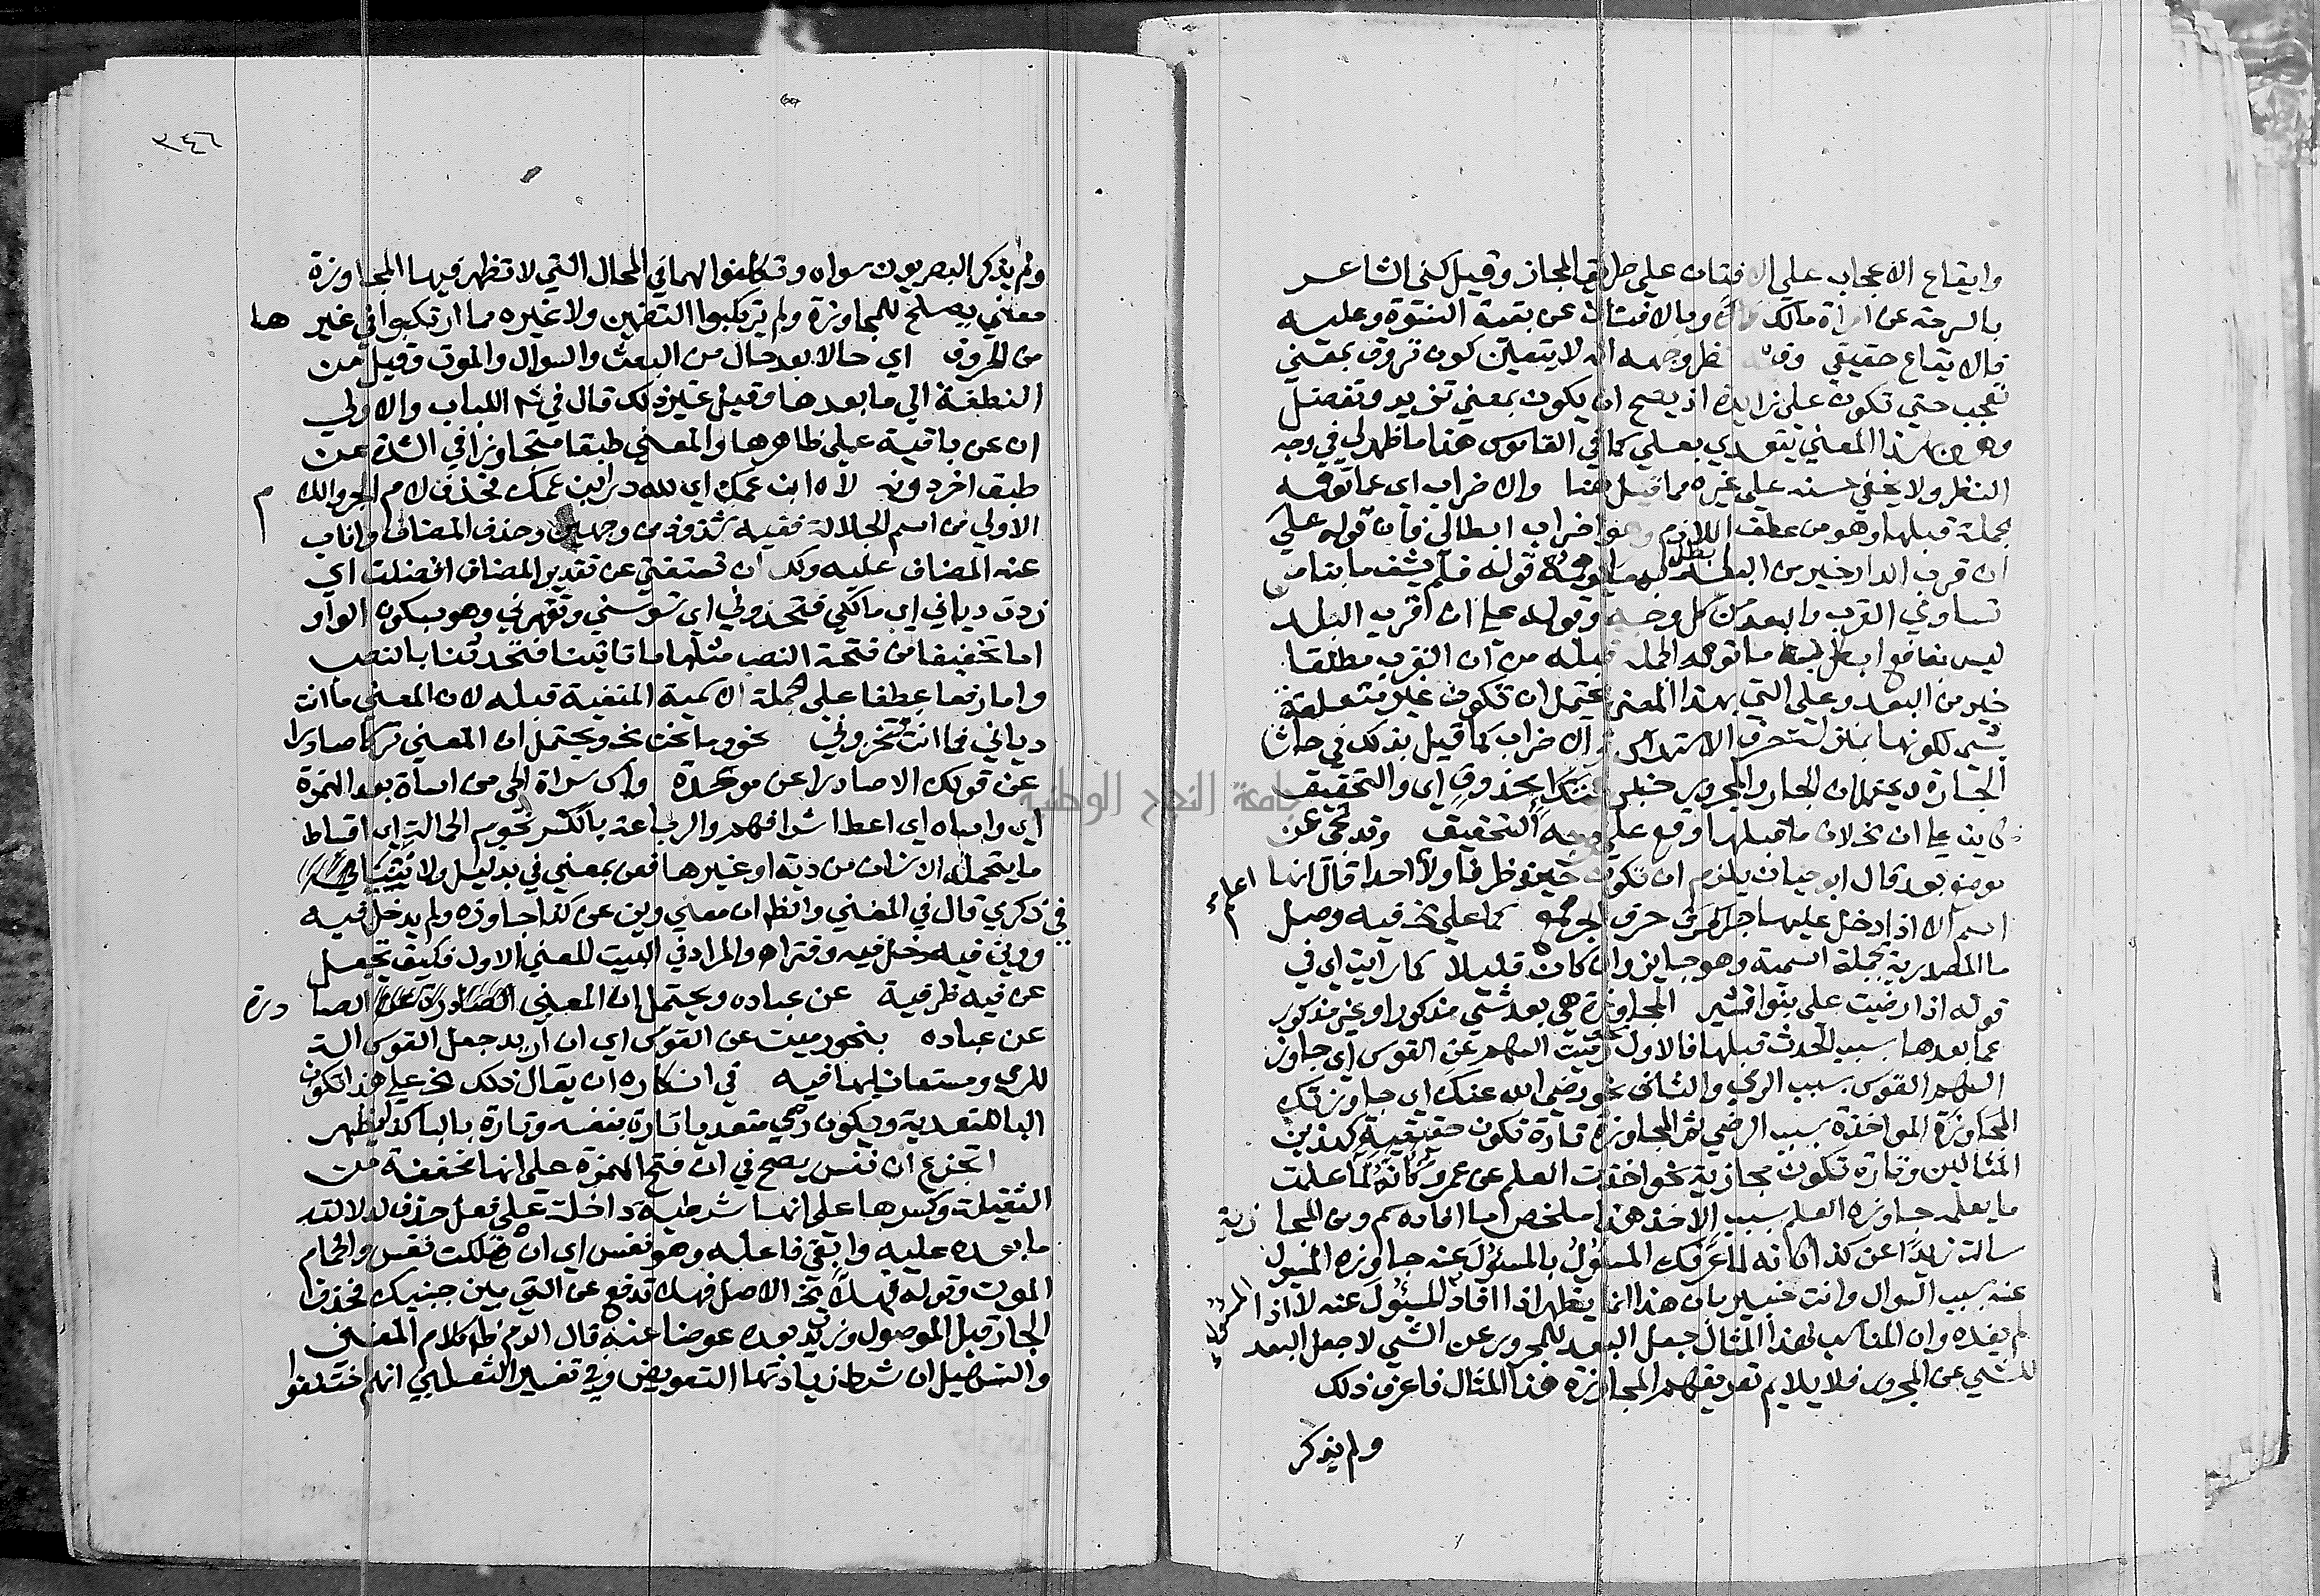 وايقاع الاعجاب على الافتتان على طريق المجاز وقيل كنى الشاعر
بالسرحة عن امراة مالك وبالافتتان عن بقية النتوة وعليه
فالايقاع حقيقي وفيه نظر وجهه انه لا يتعين كون تروق بمعني
تعجب حتى تكون على زايدة اذ يصح ان يكون بمعني تزيد وتفضل
وهو بهذا المعني يتعدي بعلي كما في القاموس هذا ما ظهر لي في وجه
النظر ولا يخفي حسنه علي غيره مما قيل هنا والاضراب اي عما توهمه
جملة قبلها وهو من عطف اللازم وهو اضراب ابطالي فان قوله علي
ان قرب الدار خير من البعد ابطل به قوله فلم يشف ما بنا من
تساوي القرب والبعد من كل وجه وقوله علي ان قرب الدار
ليس بنافع ابطل به ما توهمه الجملة قبله من ان القرب مطلقا
خير من البعد وعلى التي بهذا المعني يحتمل ان تكون غير متعلقة
بشي لكونها بمنزلة حرف الاستدراك والاضراب كما قيل بذلك في حاشا
الجارة ويحتمل ان الجار والمجرور خبر مبتدا محذوف اي والتحقيق
كاين علي ان لان ما قبلها وقع على وجه التحقيق وقد تجي عن
موضع بعد قال ابو حيان يلزم ان تكون حينئذ ظرفا ولا اعلم احدا قال انها
اسم الا اذا دخل عليها حرف الجر كما علي فيه وصل
ما المصدرية بجملة اسمية وهو جايز وان كان قليلا كما رايت اي في
قوله اذا رضيت علي بنو قشير المجاوزة هي بعد شي مذكور او غير مذكور
عما بعدها بسبب الحدث قبلها فالاول نحو رميت السهم عن القوس اي جاوز
السهم القوس بسبب الرمي والثاني نحو رضي الله عنك اي جاوزتك
المواخذة بسبب الرضي ثم المجاوزة تارة تكون حقيقية كهذين
المثالين وتارة تكون مجازية نحو اخذت العلم عن عمرو كانه لما علمت
ما يعلمه جاوزه العلم بسبب الاخذ هذا ملخص ما افاده سم ومن المجازية
سالت زيدا عن كذا كانه لما عرفك المسؤل بالمسؤل عنه جاوزه المسؤل
عنه بسبب السوال وانت خبير بان هذا انما يظهر اذا افاد المسؤل المسؤل عنه لا اذا
لم يفده وان المناسب لهذا المثال جعل البعد للمجرور عن الشي لا جعل البعد
للشي عن المجرور فلا يلايم تعريفهم المجاوزة هذا المثال فاعرف ذلك
ولم يذكر
٣٤٦
ولم يذكر البصريون سواه وتكلفوا لها في المحال التي لا تظهر فيها المجاوزة
معني يصلح للمجاوزة ولم يرتكبوا التضمين ولا غيره مما ارتكبوا في غيرها
من الحروف اي حالا بعد حال من البعث والسوال والموت وقيل من
النطفة الي ما بعدها وقيل غير ذلك قال في اللباب والاولي
ان عن باقية علي ظاهرها والمعني طبقا متجاوزا في الشدة عن
طبق اخر دونه لاه ابن عمك اي لله در ابن عمك فحذف لام الجر واللام
الاولي من اسم الجلالة ففيه شذوذ من وجهين وحذف المضاف واناب
عنه المضاف عليه ولك ان تستغني عن تقدير المضاف افضلت اي
زدت دياني اي مالكي فتخزوني اي تسوسني وتقهرني وهو بسكون الواو
اما تخفيفا من فتحة النصب مثلها ما تاتينا فتحدثنا بالنصب
واما رفعا عطفا على الجملة الاسمية المنفية قبله لان المعني ما انت
دياني فما انت تخزوني نحو وما نحن ويحتمل ان المعني تركا صادرا
عن قولك الاصادرا عن موعدة واس سراة الحي من اساة بعد الهمزة
اي واساه اي اعط اشرافهم والرباعة بالكسر نجوم الحمالة اي اقساط
ما يتحمله الانسان من دية او غيرها فعن بمعني في بدليل ولا تنيا
في ذكري قال في المغني والظاهر ان معني وني عن كذا جاوزه ولم يدخل فيه
وونى فيه دخل فيه وفتر اه والمراد في البيت المعني الاول فكيف تجعل
عن فيه ظرفية عن عباده ويحتمل ان المعني الصادرة
عن عباده بنحو رميت عن القوس اي ان اريد جعل القوس الة
للرمي ومستعانا بها فيه في انكاره ان يقال ذلك علي هذا تكون
الباء للتعدية ويكون رمي متعديا تارة بنفسه وتارة بالباء كذا يظهر
اتجزع ان نفس يصح في ان فتح الهمزة علي انها مخففة من
الثقيلة وكسرها علي انها شرطية داخلة علي فعل حذف لدلالة
ما بعده عليه وابقي فاعله وهو نفس اي ان هلكت نفس والحمام
الموت وقوله فهلا الاصل فهلا تدفع عن التي بين جنبيك فحذف
الجار قبل الموصول وزيد بعده عوضا عنه قال الدم ظاهر كلام المغني
والتسهيل ان شرط زيادتها التعويض وفي تفسير الثعلبي انهم اختلفوا
جامعة النجاح الوطنية